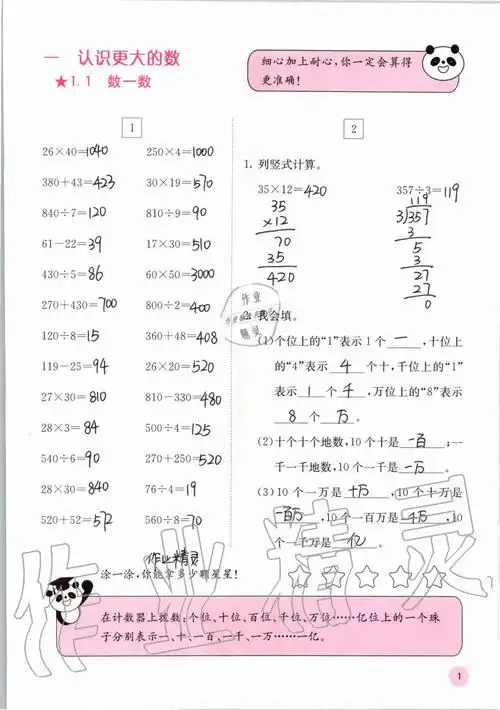 一 认识更大的数
★1.1 数一数
细心加上耐心,你一定会算得
更准确!
1
26×40=1040 250×4=1000
380+43=423 30×19=570
840÷7=120 810÷9=90
61-22=39 17×30=510
430÷5=86 60×50=3000
270+430=700 800÷2=400
120÷8=15 360+48=408
119-25=94 26×20=520
27×30=810 810-330=480
28×3=84 500÷4=125
540÷6=90 270+250=520
28×30=840 76÷4=19
520+52=572 560÷8=70
2
1. 列竖式计算。
35×12=420 357÷3=119
35
×12
70
35
420
119
3)357
3
5
3
27
27
0
作业
精灵
2. 我会填。
(1)个位上的“1”表示1个一,十位上
的“4”表示4个十,千位上的“1”
表示1个千,万位上的“8”表示
8个万。
(2)十个十个地数,10个十是一百;一
千一千地数,10个一千是一万。
(3)10个一万是十万,10个十万是
一百万,10个一百万是千万,10
个一千万是一亿。
作业精灵
涂一涂,你能拿多少颗星星!
在计数器上拨数:个位、十位、百位、千位、万位……亿位上的一个珠
子分别表示一、十、百、一千、一万……一亿。
作业精灵
1